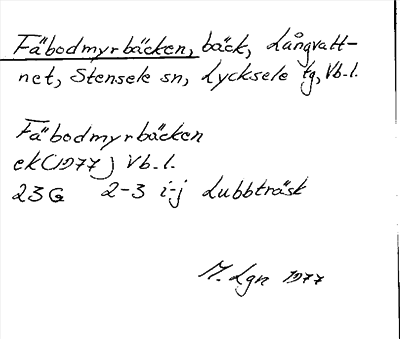 Fäbodmyrbäcken, bäck, Långvatt-
net, Stensele sn, Lycksele tg, Vb.l.
Fäbodmyrbäcken
ek (1977) Vb.l.
23 G 2-3 i-j Lubbträsk
M. Lgn 1977